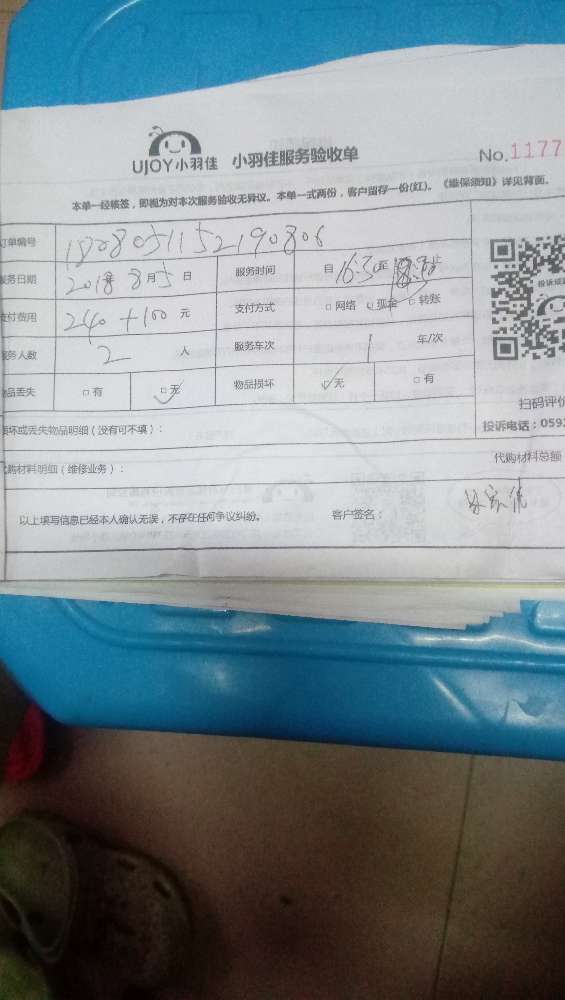 UJOY小羽佳 小羽佳服务验收单 No.1177
本单一经帐签，即视为对本次服务验收无异议。本单一式两份，客户留存一份(红)。《维保须知》详见背面。
订单编号 1808051152190806
服务日期 2018年 8月5日 服务时间 自 16:30 至 止
支付费用 240+100 元 支付方式 □网络 ☑现金 □转账
服务人数 2 人 服务车次 1 车/次
物品丢失 □有 ☑无 物品损坏 ☑无 □有
损坏或丢失物品明细（没有可不填）：
代购材料明细（维修业务）： 代购材料总额
以上填写信息已经本人确认无误，不存在任何争议纠纷。 客户签名：
投诉或
扫码评价
投诉电话：059